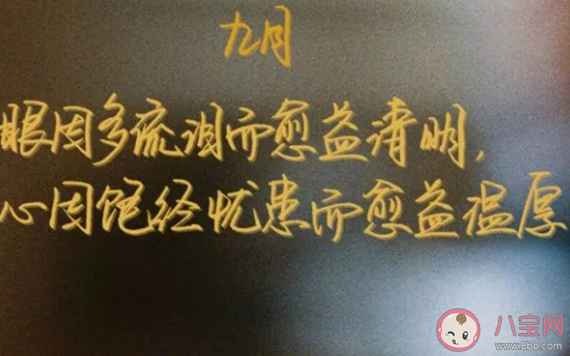 九月
眼因多流泪而愈益清明，
心因饱经忧患而愈益温厚
八宝网
www.8bo.com